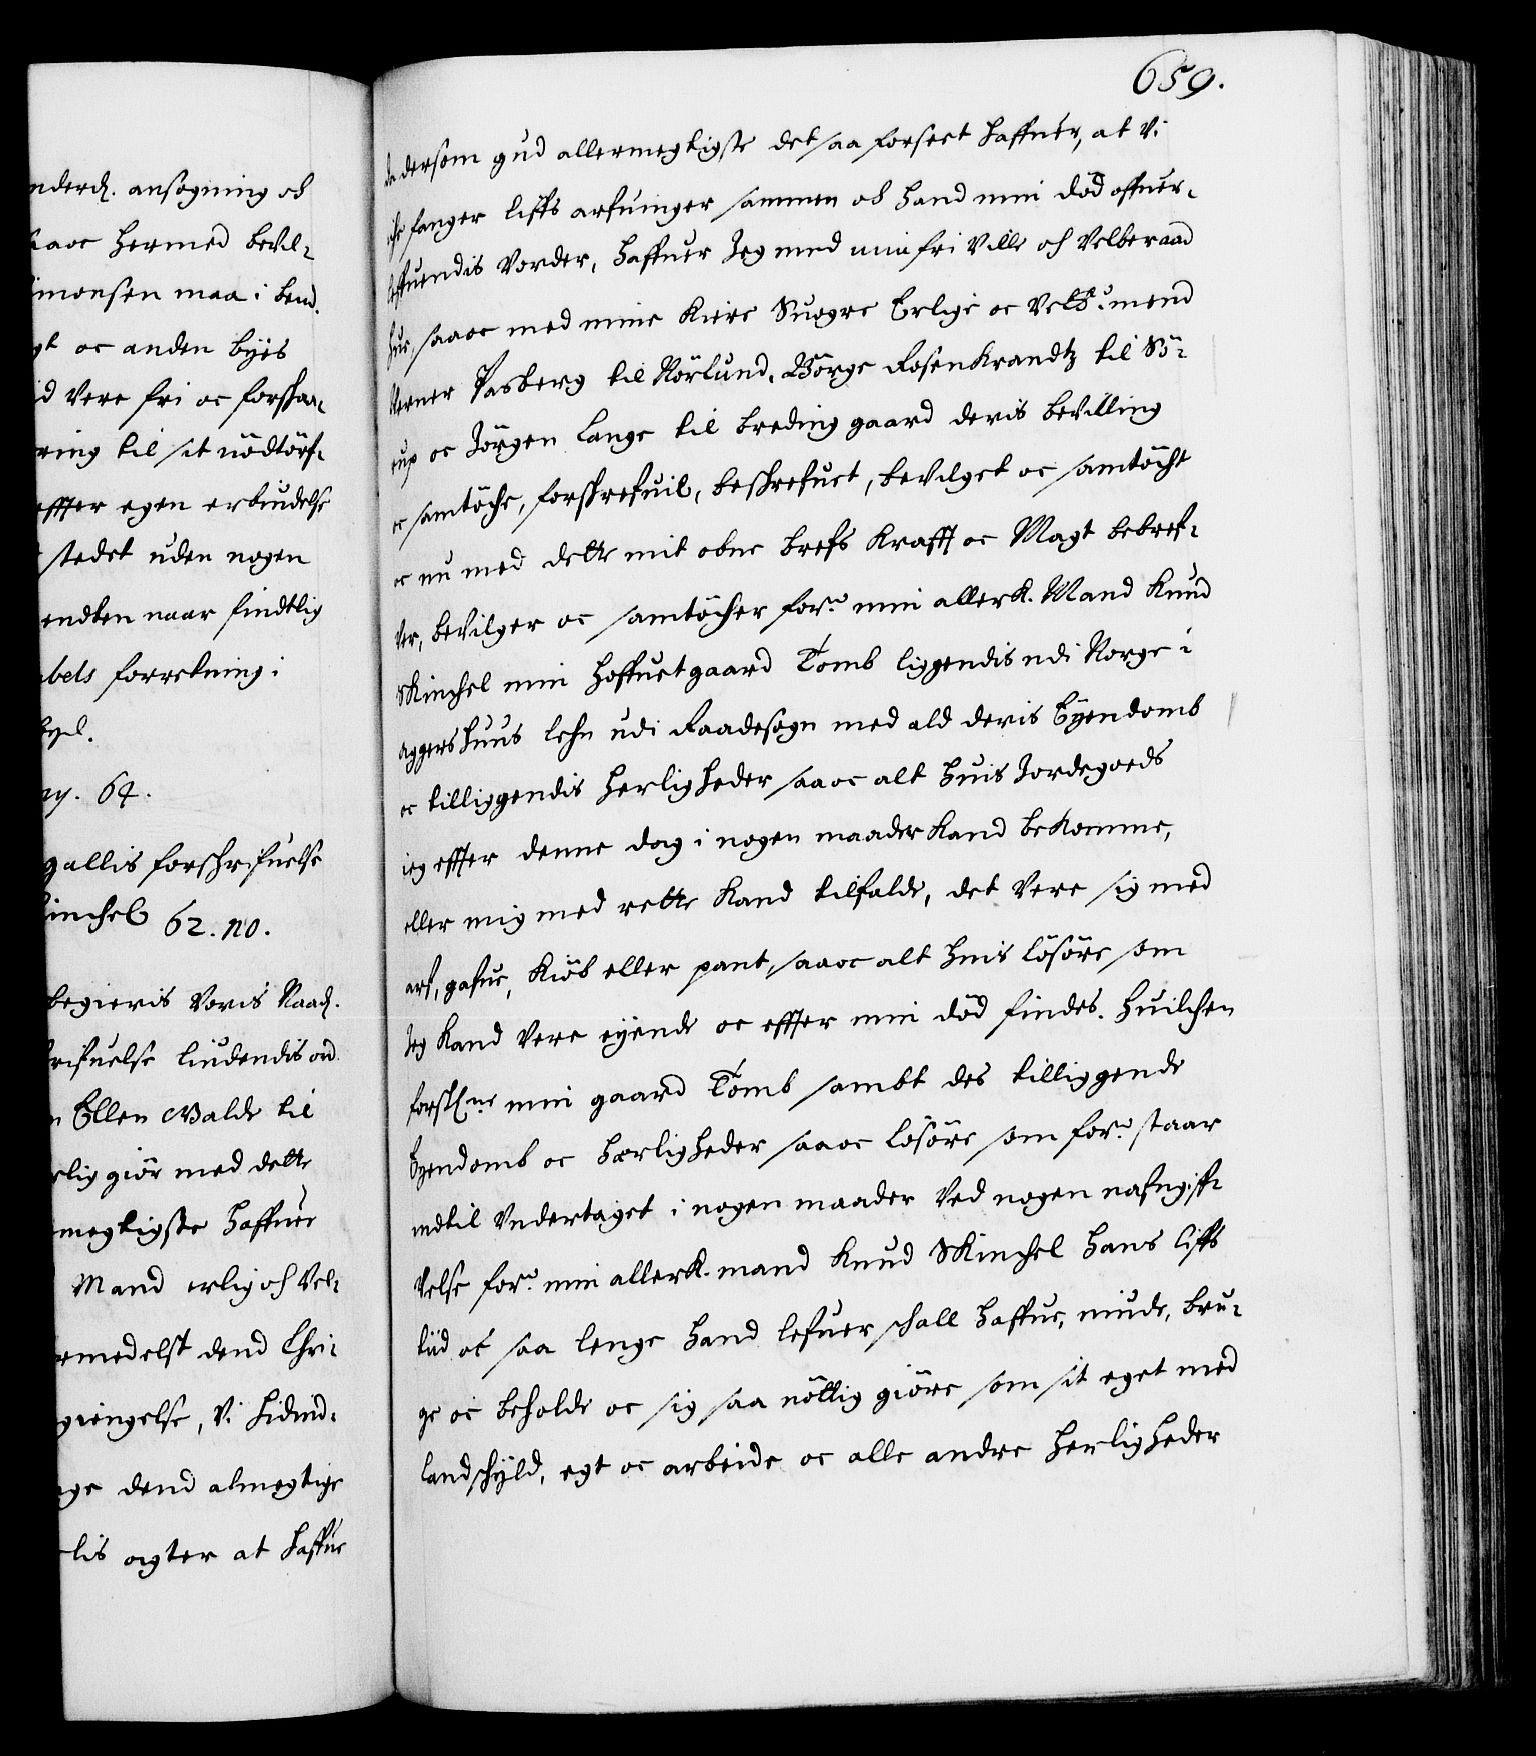 nderd. ansøgning och
saaoc hermed bevil-
imonsen maa i bem.
gt oc anden byes
id vere fri oc forskaa-
ring til sit nödtörf-
effter egen erbiudelse
stedet uden nogen
endten naar findtlig
bels forretning i
ny. 64.
gallis forschrifuelse
inchel 62. no.
begieris Voris Naad.
rifuelse liudendis ord
n Ellen Walde til
rlig giör med dette
megtigste haffuer
Mand erlig och Vel-
emedelst dend Chri-
giengelse, Vi hidind-
ge dend almegtige
lis agter at haffue
659.
da dersom gud allermegtigste det saa forseet haffuer, at Vi
iche fanger liffs arfuinger sammen och hand min död offuer-
leffuendis Vorder, haffuer Jeg med min fri Ville och Velberaad
hue, saaoc med mine kiere Suogre Erlige oc Velb: mend
Verner Pasberg til Nörlund, Börge Rosenkrandtz til Ör-
rup oc Jörgen Lange til breding gaard deris bevilling
oc samtöche, forskrefuit, beskrefuet, bevilget oc samtöcht
oc nu med dette mit obne brefs Krafft oc Magt bebref-
ver, beVilger oc samtöcher for:ne min allerk. Mand Knud
Skinchel min hoffuetgaard Tomb liggendis udi Norge i
aggershuus lehn udi Raadesogn med ald deris Eyendomb
oc tilliggendis herligheder saaoc alt huis Jordegoeds
ieg effter denne dag i nogen maader kand bekomme,
eller mig med rette kand tilfalde, det Vere sig med
arf, gafue, kiöb eller pant, saaoc alt huis lösöre som
Jeg kand Vere eyende oc effter min död findes. huilchen
forschne min gaard Tomb sambt des tilliggende
Eyendomb oc herligheder saaoc lösöre som for:ne staar
indtil Vndertaget i nogen maader Ved nogen nafngiff-
velse for:ne min allerk. mand Knud Skinchel hans liffs
tiid oc saa lenge hand lefuer schall haffue, niude, bru-
ge oc beholde oc sig saa nöttig giöre som sit eget med
landschyld, egt oc arbeide oc alle andre herligheder